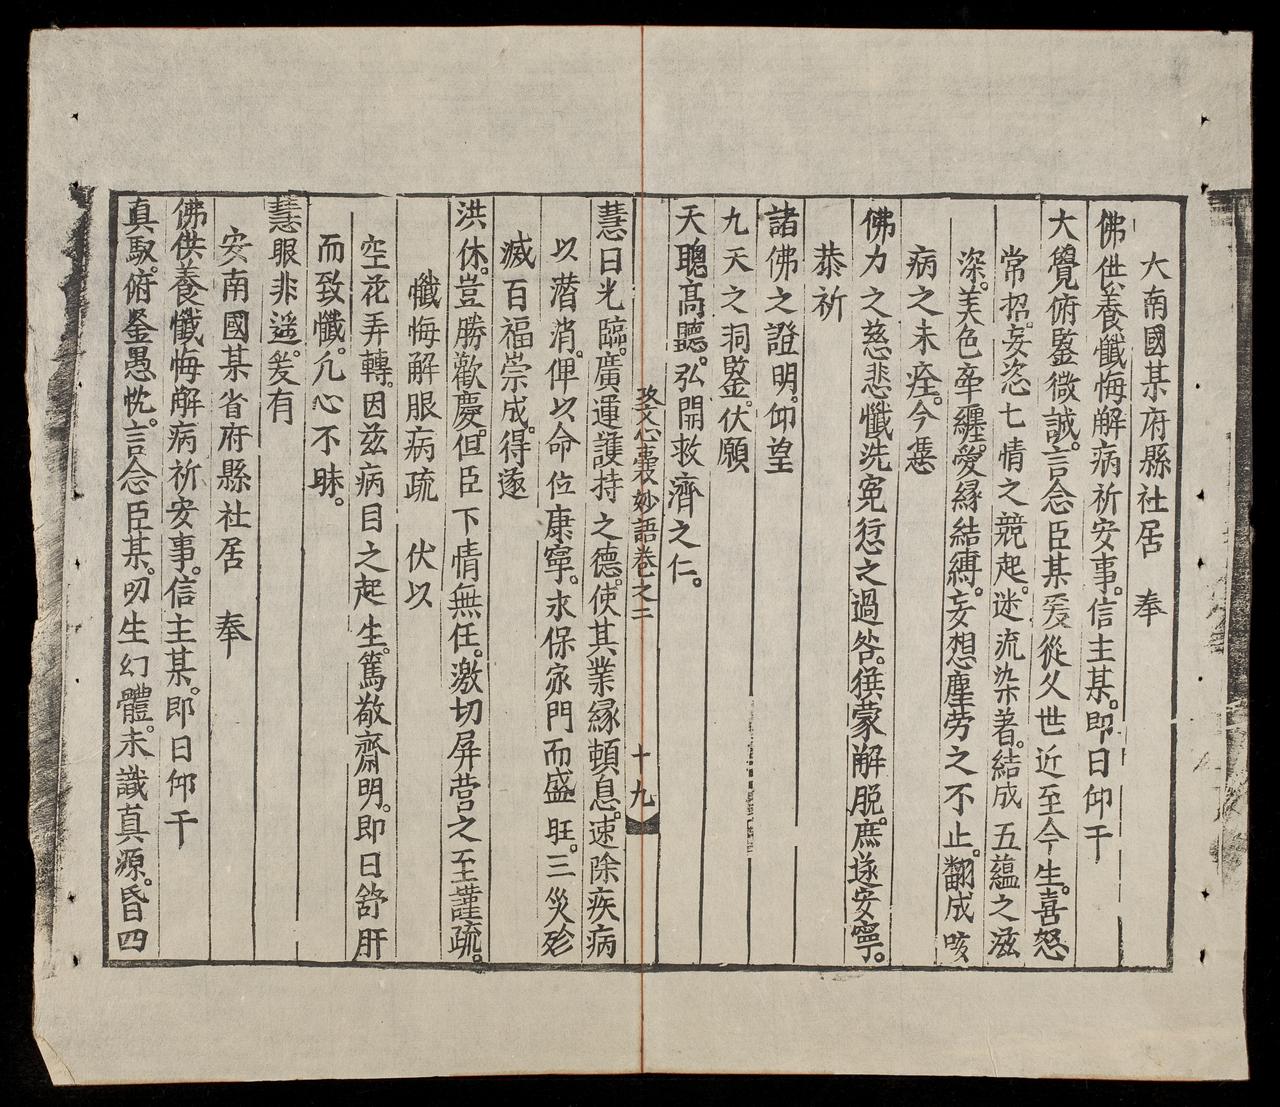 大南國某府縣社居　奉
佛供養懺悔解病祈安事。信主某。即日仰干
大覺俯鍳微誠。言念臣某爰從久世近至今生。喜怒
常招。妄恣七情之競起。迷流染著。結成五蘊之滋
深。美色牽纏。愛縁結縛。妄想塵劳之不止。翻成咳
病之未痊。今憑
佛力之慈悲懺洗寃愆之過咎。僎蒙解脱。庶遂安寧。
恭祈
諸佛之證明。仰望
九天之洞鍳。伏願
天聰髙聽。弘開救濟之仁。
心囊妙語卷之二　十九
慧日光臨。廣運護持之德。使其業縁頓息。速除疾病
以潜消。俾以命位康寧。永保家門而盛旺。三災殄
滅百福崇成。得遂
洪休。豈勝歡慶。但臣下情無任。激切屏营之至謹疏。
懺悔解眼病疏　伏以
空花弄轉。因兹病目之起生。篤敬齋明。即日舒肝
而致懺。凢心不昧。
慧眼非遥。爰有
安南國某省府縣社居　奉
佛供養懺悔解病祈安事。信主某。即日仰干
真馭。俯鍳愚忱。言念臣某。叨生幻體。未識真源。昏四